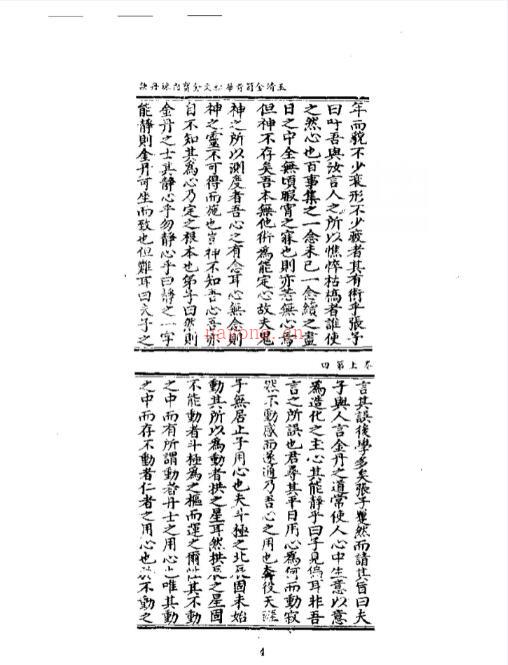 玉清金笥青華祕文金寶內煉丹訣
年而貌不少衰形不少疲者其有術乎張子
曰吁吾與汝言人之所以憔悴枯槁者誰使
之然心也百事集之一念未已一念續之盡
日之中全無頃暇宵之寐也則亦苦無心焉
但神不存矣吾本無他術為能定心故夫鬼
神之所以測度者吾心之有念耳心無念則
神之靈不可得而施也豈神不知吾心吾亦
自不知其為心乃定之根本也弟子曰然則
金丹之士其靜心乎勿靜心乎曰靜之一字
能靜則金丹可坐而致也但難耳曰夫子之
卷上第四
言其誤後學多矣張子矍然而請其旨曰夫
子與人言金丹之道常使人心中生意以意
為造化之主心其能靜乎曰子見偏耳非吾
言之所誤也君尋其平日用心為何而動寂
然不動感而遂通乃吾心之用也奔役天涯
子無居止子用心也夫斗極之北辰固未始
動其所以為動者拱之星耳然拱辰之星固
不能動者斗極為之樞而運之爾於其不動
之中而有所謂動者丹士之用心也唯其動
之中而存不動者仁者之用心也於不動之